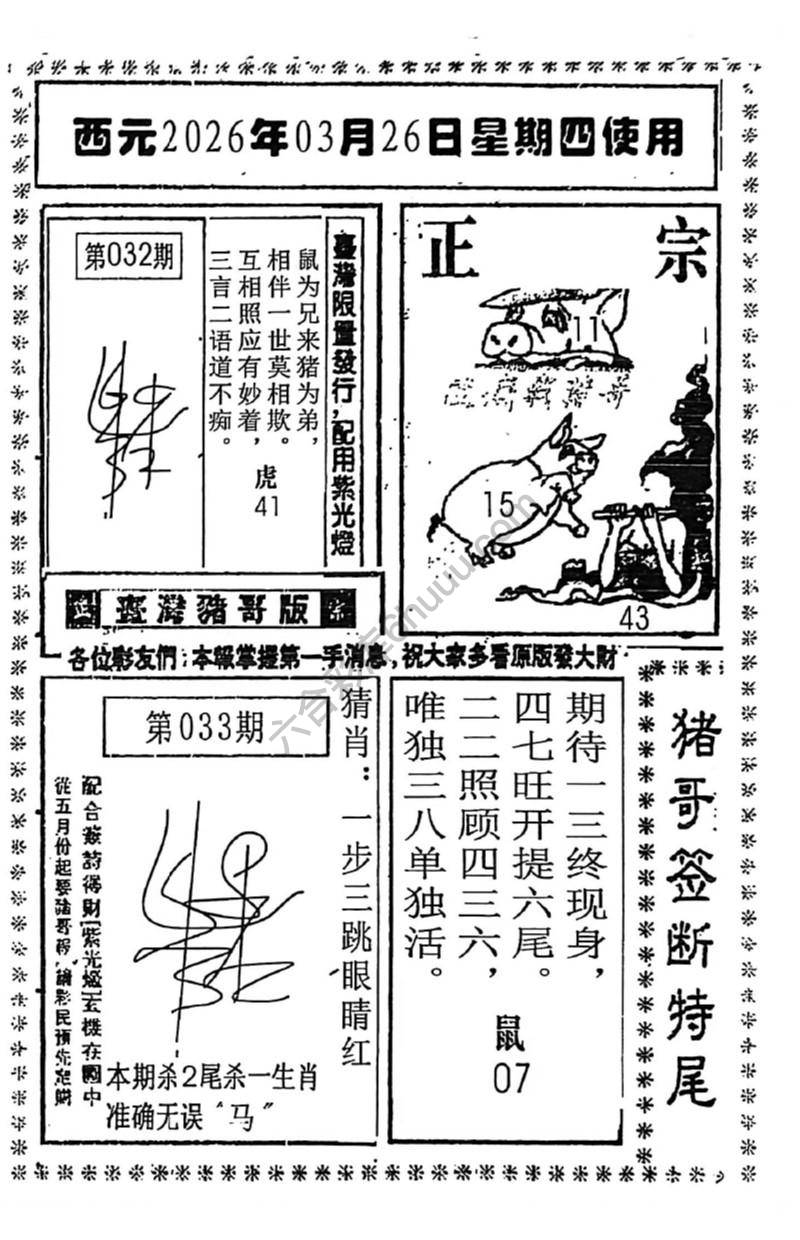 西元2026年03月26日星期四使用
第032期
臺灣限量發行,配用紫光燈
鼠为兄来猪为弟,
相伴一世莫相欺。
互相照应有妙着,
三言二语道不痴。
虎
41
正宗
11
15
43
臺灣豬哥版
各位彩友們:本報掌握第一手消息,祝大家多看原版發大財
六合彩库@huuu.com
第033期
猜肖:一步三跳眼睛红
配合簽詩得財[紫光燈]玄機在圖中
從五月份起要豬哥報,請彩民預先定購
本期杀2尾杀一生肖
准确无误“马”
期待一三终现身,
四七旺开提六尾。
二二照顾四三六,
唯独三八单独活。
鼠
07
猪哥签断特尾